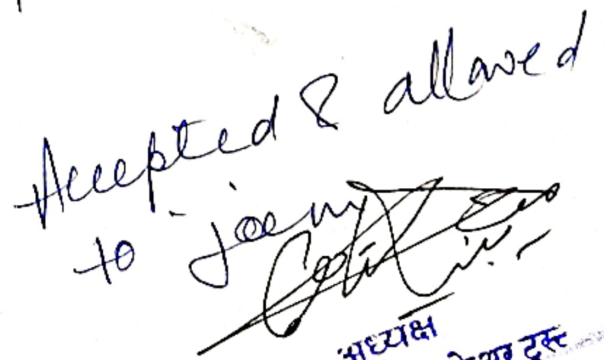 Accepted & allowed
to join
अध्यक्ष
ट्रस्ट